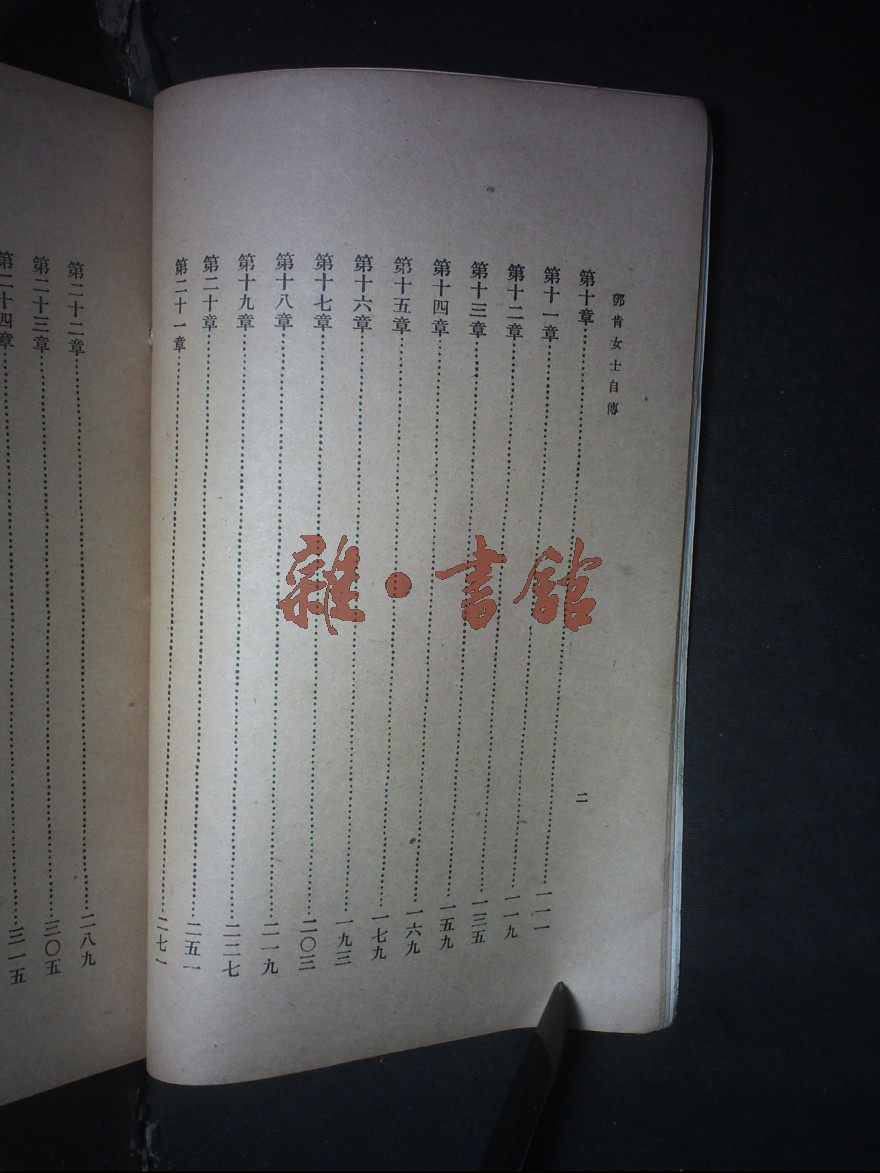 郭肯女士自傳
二
第十章……一一一
第十一章……一一九
第十二章……一三五
第十三章……一五九
第十四章……一六九
第十五章……一七九
第十六章……一九三
第十七章……二〇三
第十八章……二一九
第十九章……二二七
第二十章……二五一
第二十一章……二七一
第二十二章……二八九
第二十三章……三〇五
第二十四章……三一五
雜·書館